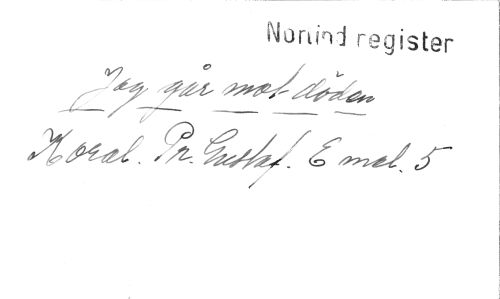 Nonind register
Jag går mot döden
Koral. Pr. Gustaf. E mel. 5